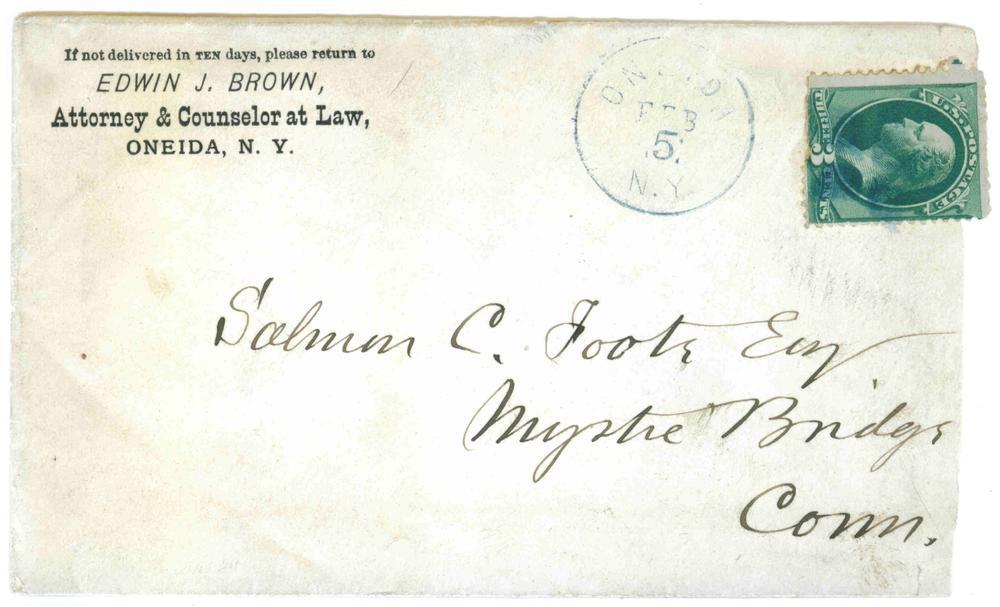 If not delivered in TEN days, please return to
EDWIN J. BROWN,
Attorney & Counselor at Law,
ONEIDA, N. Y.
ONEIDA
FEB
5
N.Y.
U.S. POSTAGE
THREE 3 CENTS
Salmon C. Foote Esq
Mystic Bridge
Conn.